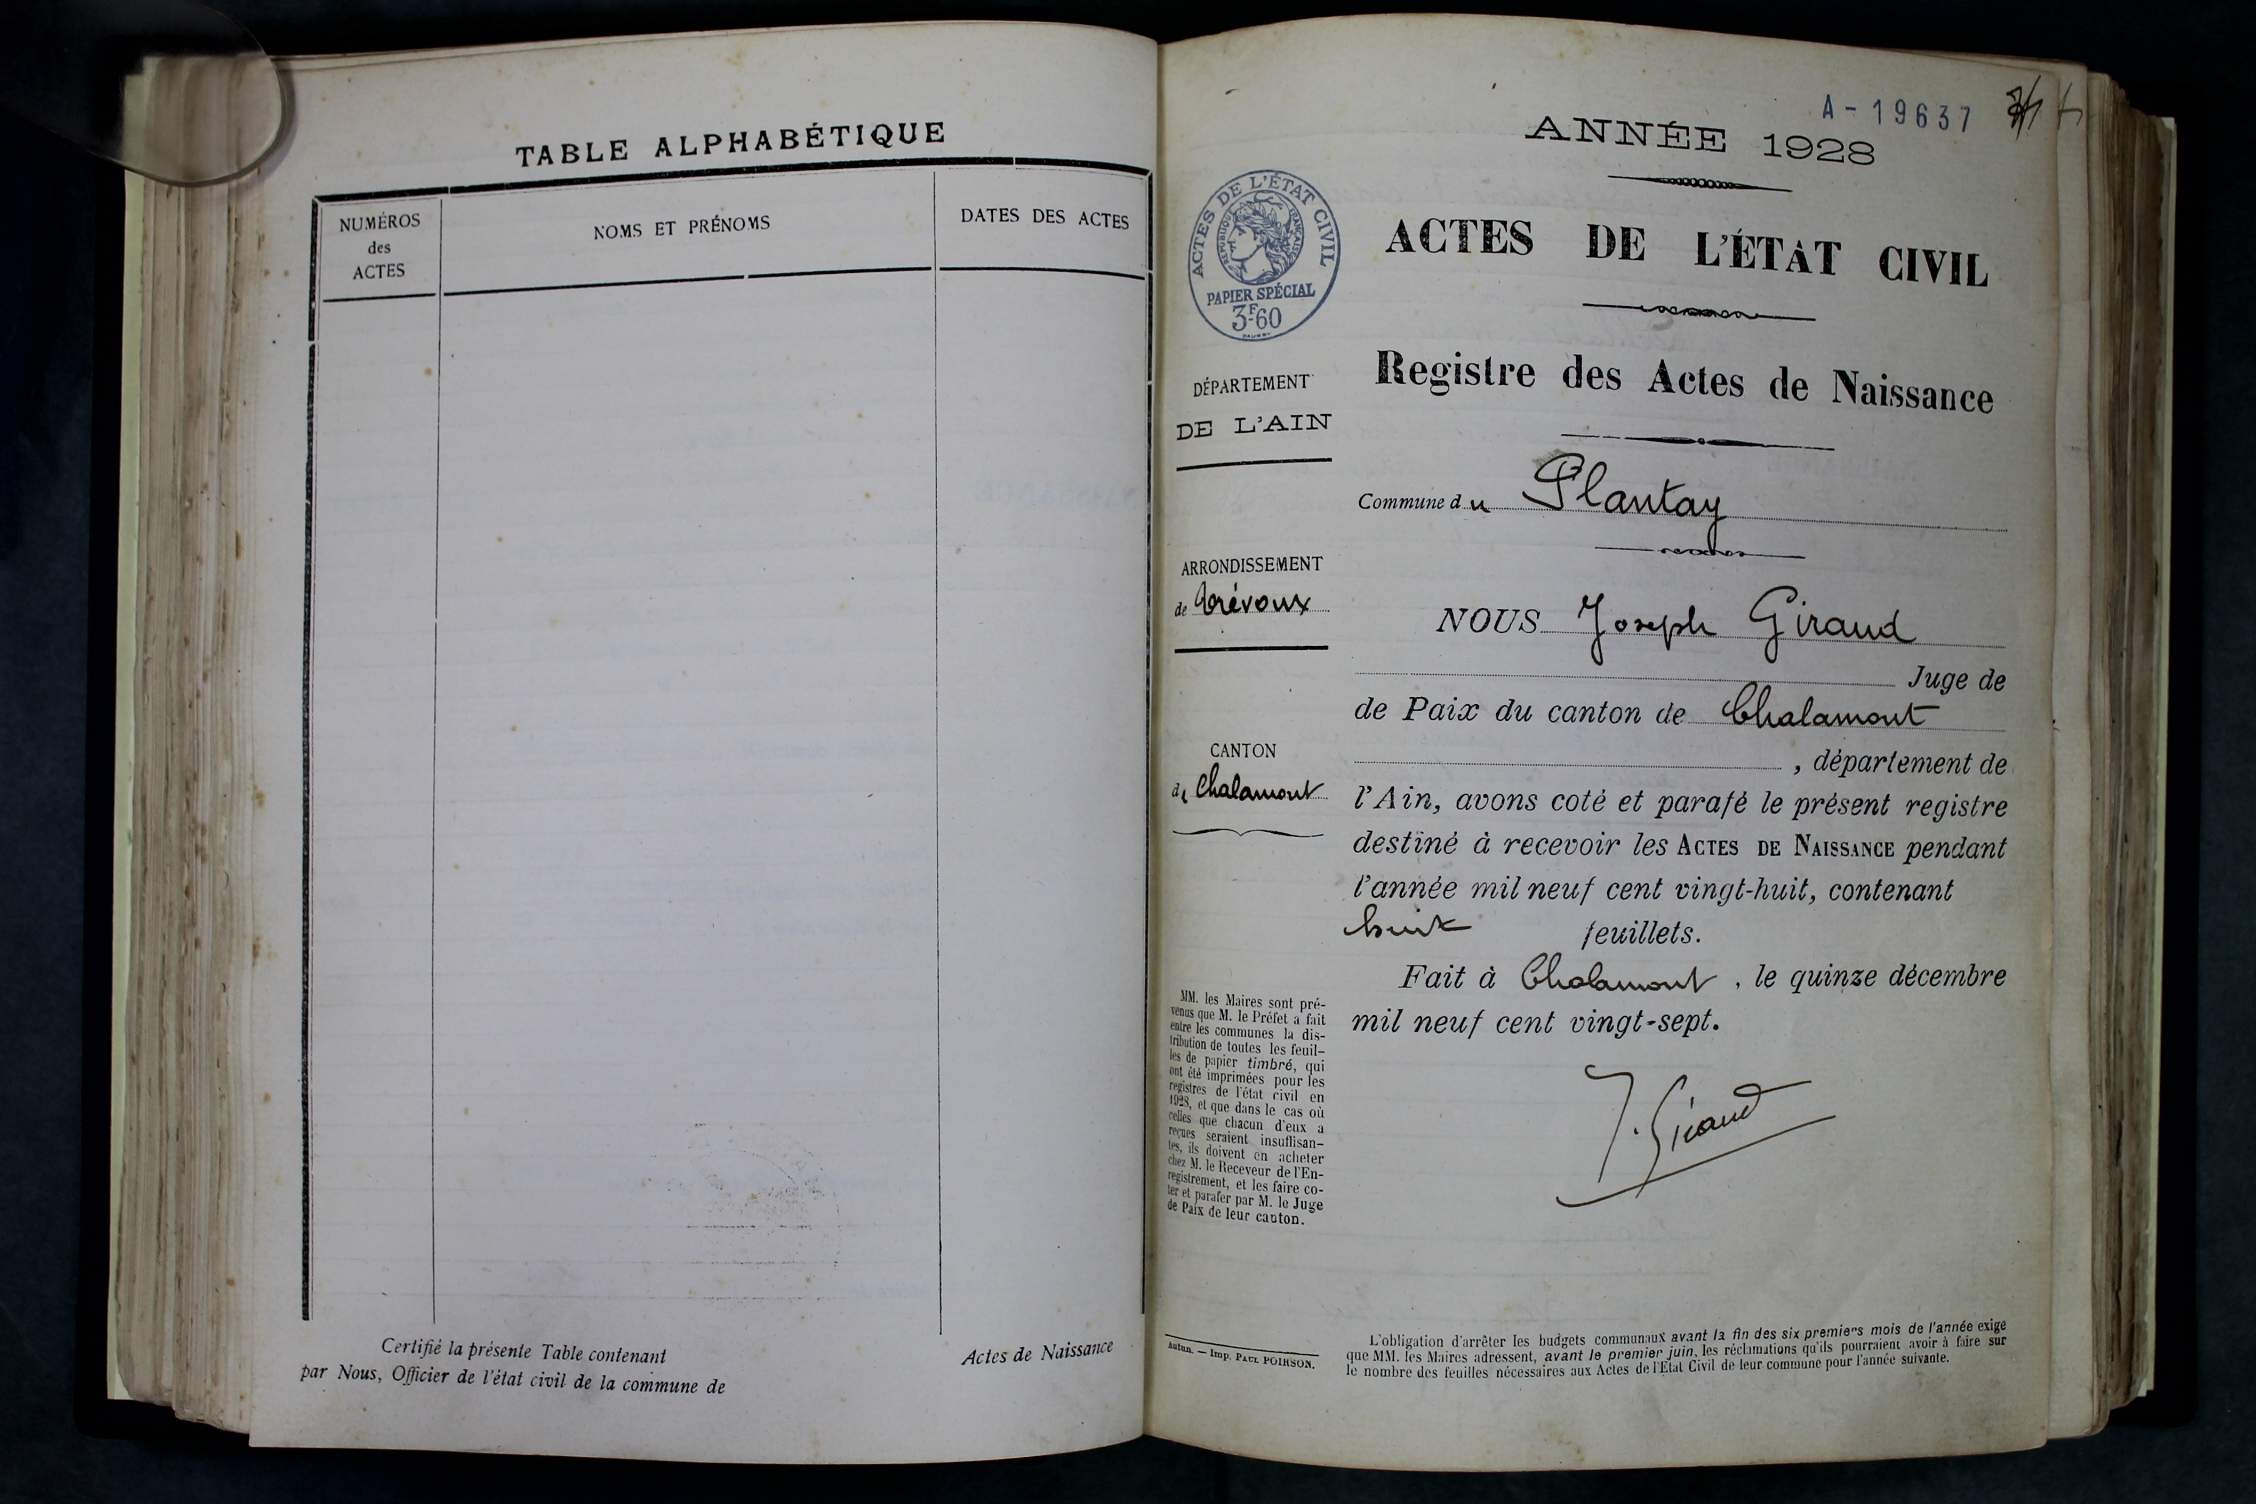 TABLE ALPHABÉTIQUE
NUMÉROS
des
ACTES
NOMS ET PRÉNOMS
DATES DES ACTES
Certifié la présente Table contenant
Actes de Naissance
par Nous, Officier de l'état civil de la commune de
A-19637
ANNÉE 1928
ACTES DE L'ÉTAT CIVIL
RÉPUBLIQUE FRANÇAISE
PAPIER SPÉCIAL
3F60
ACTES DE L'ÉTAT CIVIL
Registre des Actes de Naissance
DÉPARTEMENT
DE L'AIN
Commune du Plantay
ARRONDISSEMENT
de Trévoux
CANTON
de Chalamont
NOUS Joseph Giraud
Juge de
de Paix du canton de Chalamont
, département de
l'Ain, avons coté et parafé le présent registre
destiné à recevoir les ACTES DE NAISSANCE pendant
l'année mil neuf cent vingt-huit, contenant
huit feuillets.
Fait à Chalamont, le quinze décembre
mil neuf cent vingt-sept.
J. Giraud
MM. les Maires sont pré-
venus que M. le Préfet a fait
entre les communes la dis-
tribution de toutes les feuil-
les de papier timbré, qui
ont été imprimées pour les
registres de l'état civil en
1928, et que dans le cas où
celles que chacun d'eux a
reçues seraient insuffisan-
tes, ils doivent en acheter
chez M. le Receveur de l'En-
registrement, et les faire co-
ter et parafer par M. le Juge
de Paix de leur canton.
Autun. — Imp. PAUL POIRSON.
L'obligation d'arrêter les budgets communaux avant la fin des six premiers mois de l'année exige
que MM. les Maires adressent, avant le premier juin, les réclamations qu'ils pourraient avoir à faire sur
le nombre des feuilles nécessaires aux Actes de l'Etat Civil de leur commune pour l'année suivante.